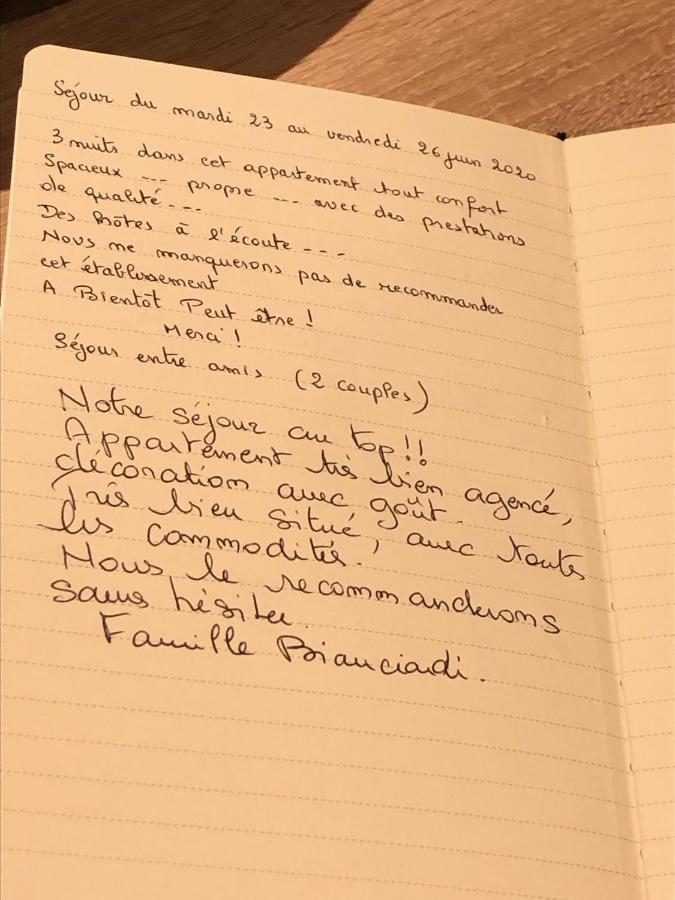 Séjour du mardi 23 au vendredi 26 juin 2020
3 nuits dans cet appartement tout confort
Spacieux --- propre --- avec des prestations
de qualité ---
Des hôtes à l'écoute ---
Nous ne manquerons pas de recommander
cet établissement
A Bientôt Peut être !
Merci !
Séjour entre amis (2 couples)
Notre séjour au top!!
Appartement très bien agencé,
décoration avec goût.
Très bien situé, avec toutes
les commodités.
Nous le recommanderons
sans hésiter.
Famille Bianciardi.